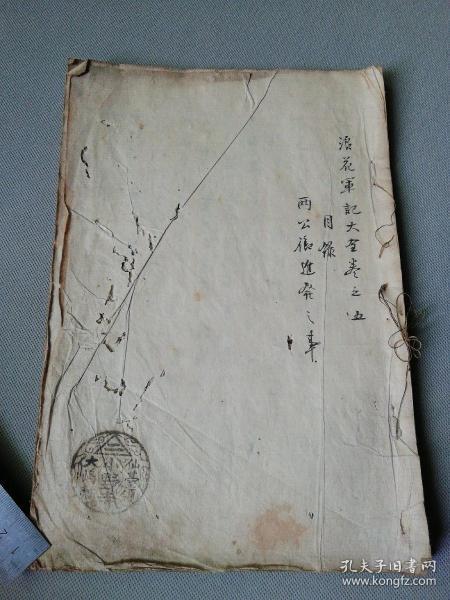 浪花軍記大全巻之五
目録
両公御進発之事
孔夫子旧书网
www.kongfz.com
7